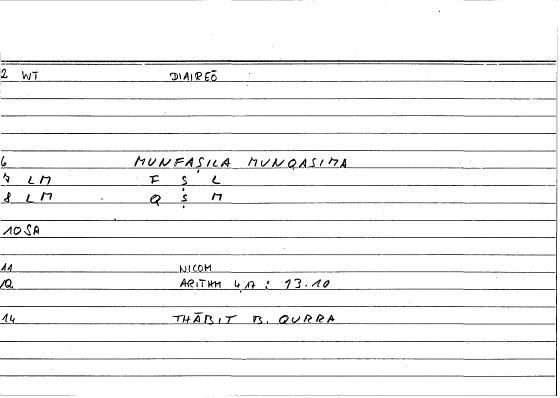 2 WT DIAIREŌ
6 MUNFAṢILA MUNQASIMA
7 LM F Ṣ L
8 LM Q Ṣ M
10 SA
11 NICOM
12 ARITHM 4,17 : 13.10
14 THĀBIT B. QURRA